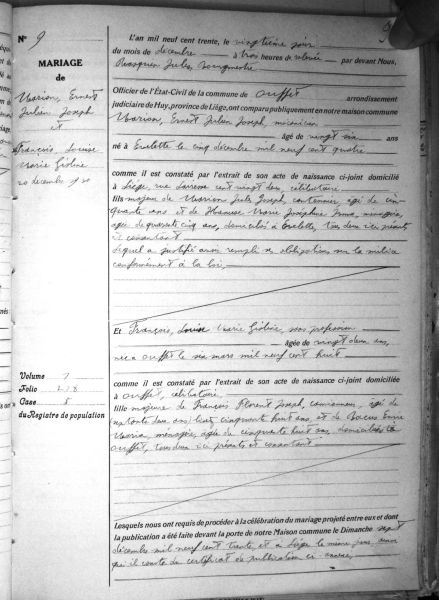 N° 9
MARIAGE
de
Marion, Ernest
Julien Joseph
et
François, Louise
Marie Ghislaine
20 décembre 1930
Volume 7
Folio 218
Case 5
du Registre de population
L'an mil neuf cent trente, le vingtième jour
du mois de décembre à trois heures de relevée par devant Nous,
Jules, bourgmestre
Officier de l'État-Civil de la commune de Ouffet arrondissement
judiciaire de Huy, province de Liége, ont comparu publiquement en notre maison commune
Marion, Ernest Julien Joseph, mécanicien
âgé de vingt six ans
né à Evelette le cinq décembre mil neuf cent quatre
comme il est constaté par l'extrait de son acte de naissance ci-joint domicilié
à Liége, rue cent vingt deux, célibataire
fils majeur de Marion Jules Joseph, cantonnier, âgé de cin-
quante ans et de Marie Joséphine ménagère,
âgée de quarante cinq ans, domiciliés à Evelette, tous deux ici présents
et consentant
Lequel a justifié avoir rempli ses obligations sur la milice
conformément à la loi.
Et François, Louise Marie Ghislaine, sans profession
âgée de vingt deux ans,
née à Ouffet le six mars mil neuf cent huit
comme il est constaté par l'extrait de son acte de naissance ci-joint domiciliée
à Ouffet, célibataire
fille majeure de François Florent Joseph, âgé de
cinquante huit ans et de
Maria, ménagère, âgée de cinquante huit ans, domiciliés à
Ouffet, tous deux ici présents et consentant
Lesquels nous ont requis de procéder à la célébration du mariage projeté entre eux et dont
la publication a été faite devant la porte de notre Maison commune le Dimanche sept
décembre mil neuf cent trente et à Liége le même jour, ainsi
qu'il conste du certificat de publication ci-annexé,